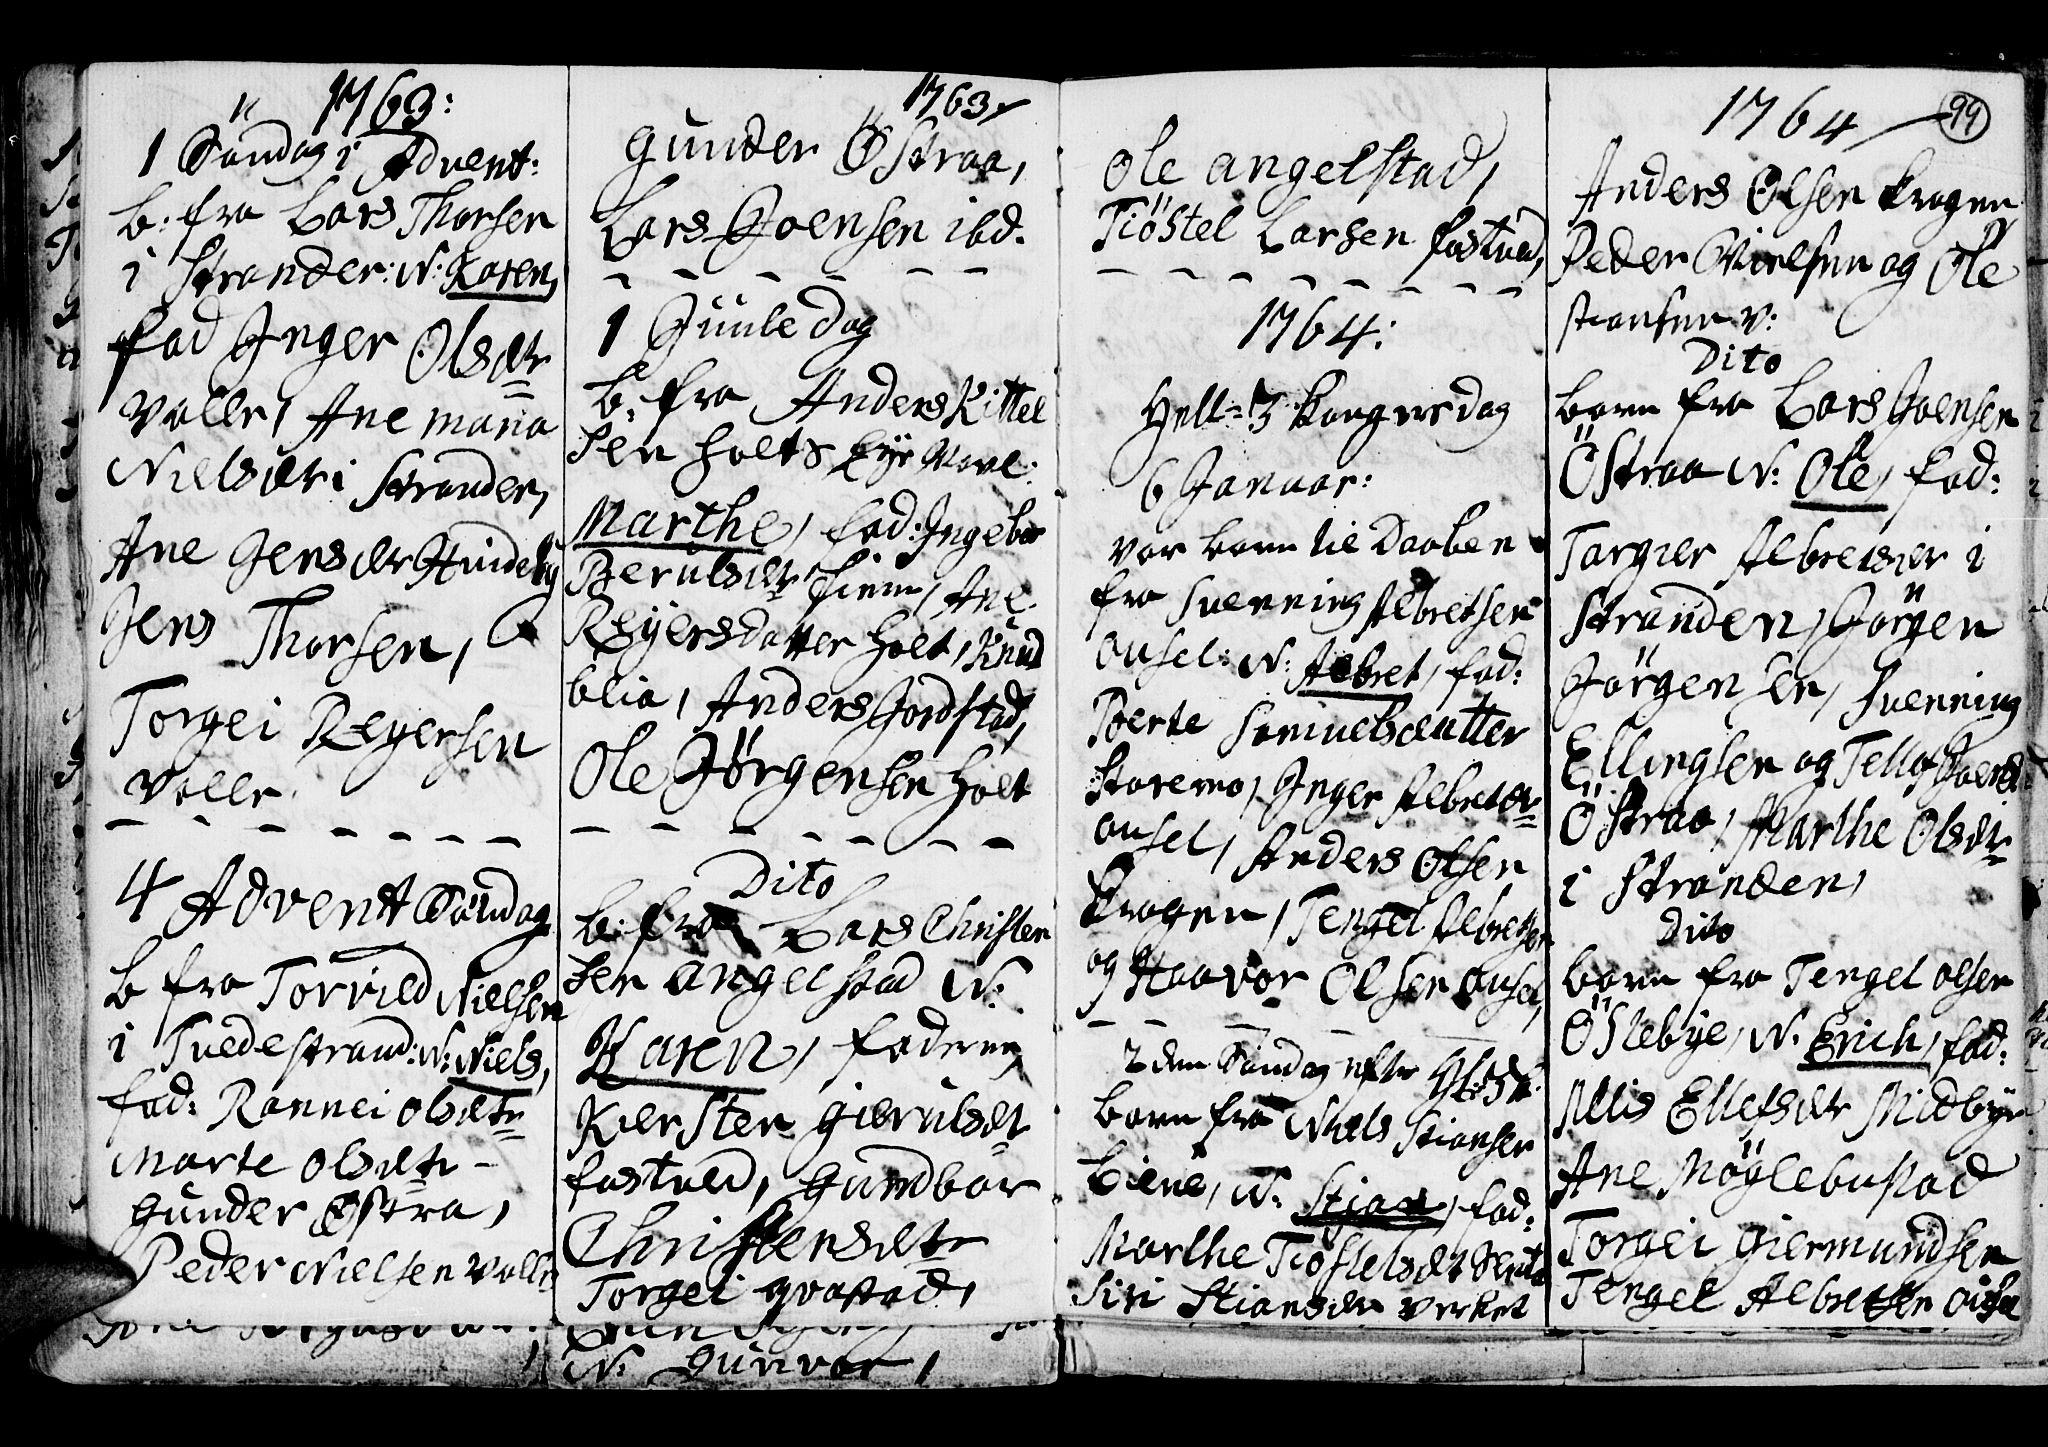 1763:
1 Søndag i Advent:
b: fra Lars Thorsen
i Strander: N: Karen,
fad Inger Olsdtr
Valle, Ane maria
Nielsdtr i Stranden,
Ane Jensdtr Hündeby
Jens Thorsen,
Torgei Reyersen
Valle.
4 Advent Søndag
b fra Torvild Nielsen
i Tvedestrand: N: Niels,
fad: Rannei olsdtr
Marte olsdtr
Günder Østra,
Peder Nielsen Valle
1763
günder Østraa,
Lars Joensen ibd.
1 Juule dag
b: fra Anders Kittel
sen holts Eye
Marthe, fad: Ingebor
Berülsdtr Ane
Reyersdatter Holt, Knud
blia, Anders Jordstad,
Ole Jørgensen Holt
Dito
b: fra Lars Christen
sen angelstad N:
Karen, faderne
Kiersten gierulsdtr
fostved, gundbor
Christensdtr
Torgei qvastad,
N: Gunvor,
Ole angelstad,
Tiöstel Larsen fostved,
1764:
Hell= 3 Kongersdag
6 Januar:
var barn til Daaben
fra Svenning Albretsen
ousel: N: Albret, fad:
Berte Samuelsdatter
Staremo, Inger Albretsdtr
ousel, Anders Olsen
Krogen, Tengel Albretsen
og Haavor Olsen ousel,
2den Søndag efter H: 3 K:
barn fra Niels Stiansen
Liene, N: Stian, fad:
Marthe Tiöstelsdtr
Siri Stiansdtr verket
1764
99
Anders Olsen Krogen
Peder Nielsen og Ole
stiansen v:
Dito
barn fra Lars Joensen
Östraa N: Ole, fad:
Targier Albretsdtr i
Stranden, Jörgen
Jörgensen, Svenning
Ellingsen og Tellof Joens
Östraa, Marthe Olsdtr
i Stranden,
Dito
barn fra Tengel olsen
Östebye, N. Erich, fad:
Allis Ellefsdtr Midbye
Ane Möglebustad
Torgei giermundsen
Tengel Albretsen ousel